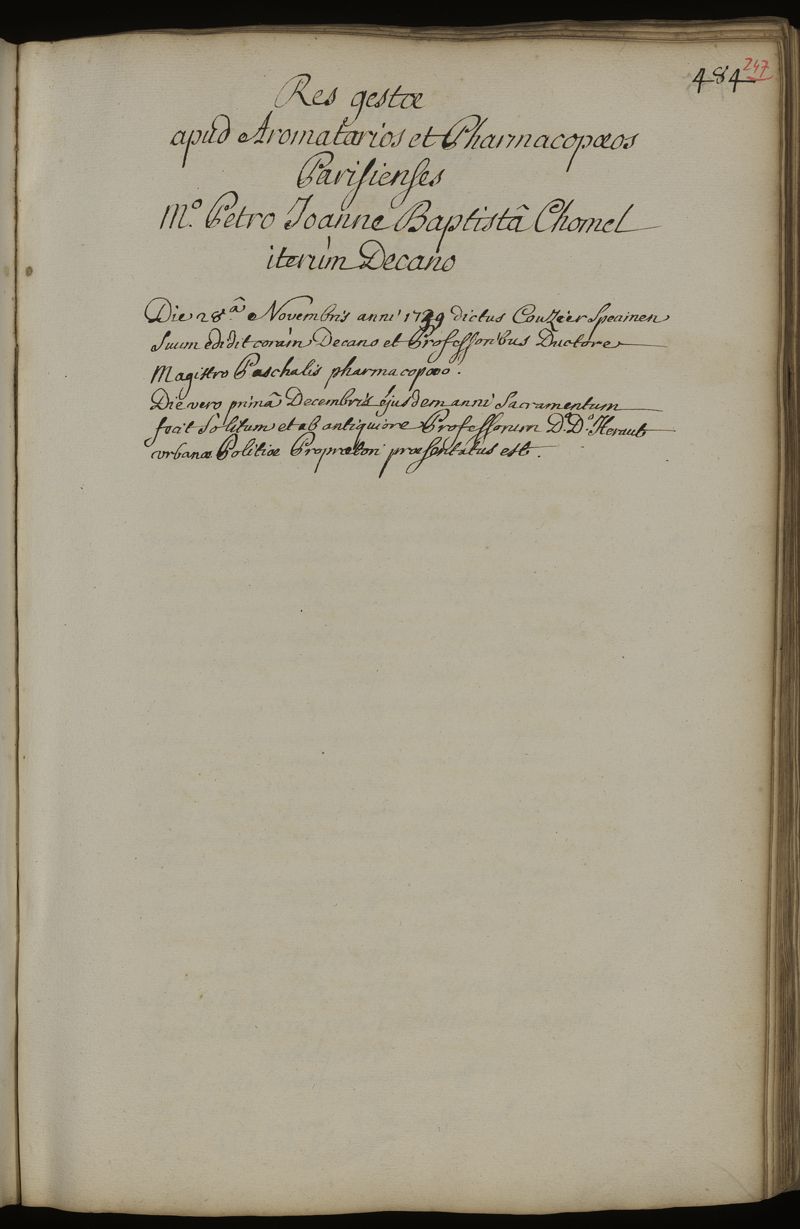 484
247
Res gestæ
apud Aromatarios et Pharmacopæos
Parisienses
M.º Petro Joanne Baptistâ Chomel
iterùm Decano
Die 28.ª Novembris anni 1729 dictus Couzier Specimen
suum edidit coràm Decano et Professoribus Ductore
Magistro Paschalis pharmacopæo.
Die vero primâ Decembris ejusdem anni Sacramentum
fecit Sólitum et ab antiquiore Professorum D.º D.º Heraut
urbanæ Politiæ Proprætori præsentatus est.